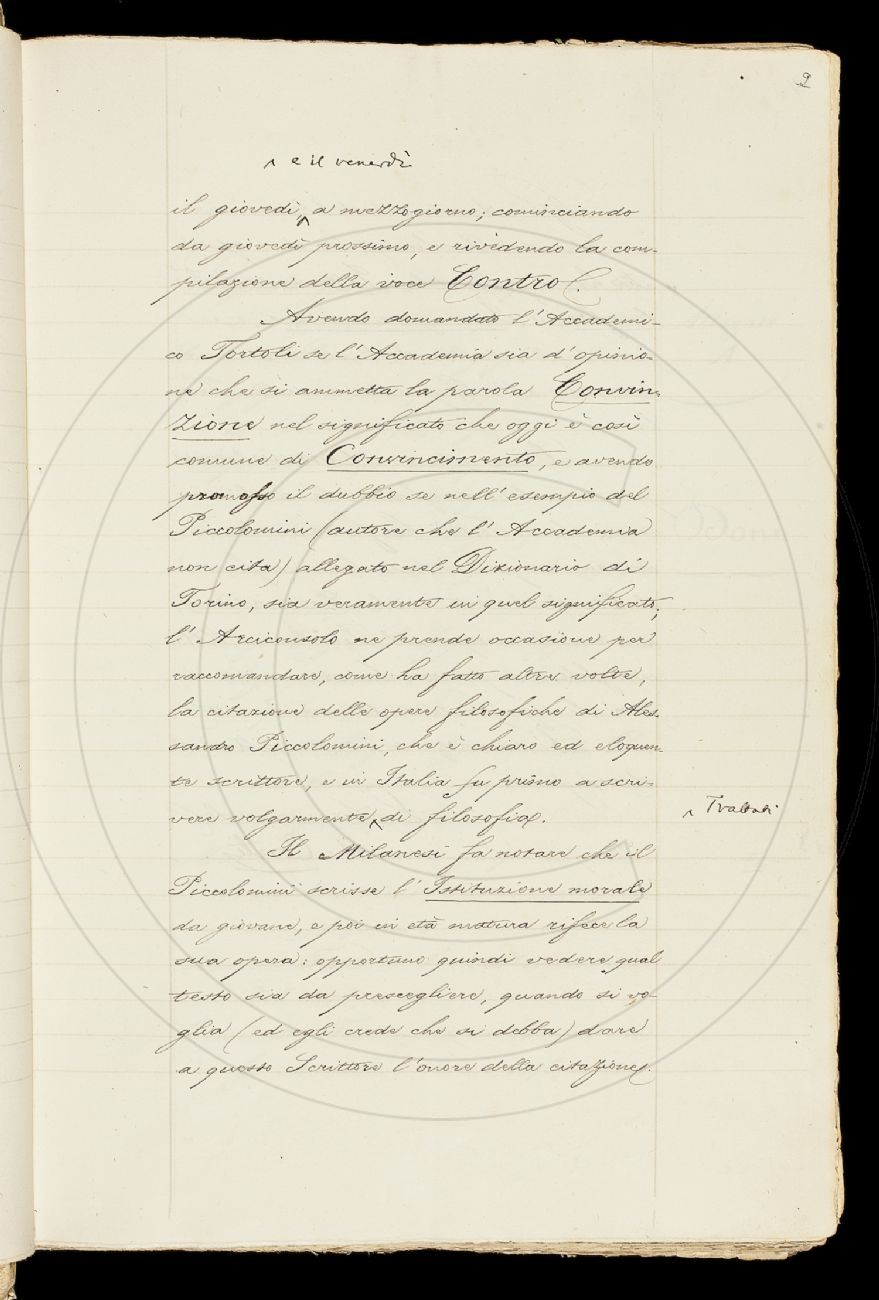 9
^ e il venerdì
il giovedì ^ a mezzogiorno; cominciando
da giovedì prossimo, e rivedendo la com-
pilazione della voce Contro.
Avendo domandato l'Accademi-
co Tortoli se l'Accademia sia d'opinio-
ne che si ammetta la parola Convin-
zione nel significato che oggi è così
comune di Convincimento, e avendo
promosso il dubbio se nell'esempio del
Piccolomini (autore che l'Accademia
non cita) allegato nel Dizionario di
Torino, sia veramente in quel significato;
l'Arciconsolo ne prende occasione per
raccomandare, come ha fatto altre volte,
la citazione delle opere filosofiche di Ales-
sandro Piccolomini, che è chiaro ed eloquen-
te scrittore, e in Italia fu primo a scri-
vere volgarmente ^ di filosofia.
^ Trattati
Il Milanesi fa notare che il
Piccolomini scrisse l'Istituzione morale
da giovane, e poi in età matura rifece la
sua opera: opportuno quindi vedere qual
testo sia da prescegliere, quando si vo-
glia (ed egli crede che si debba) dare
a questo Scrittore l'onore della citazione.